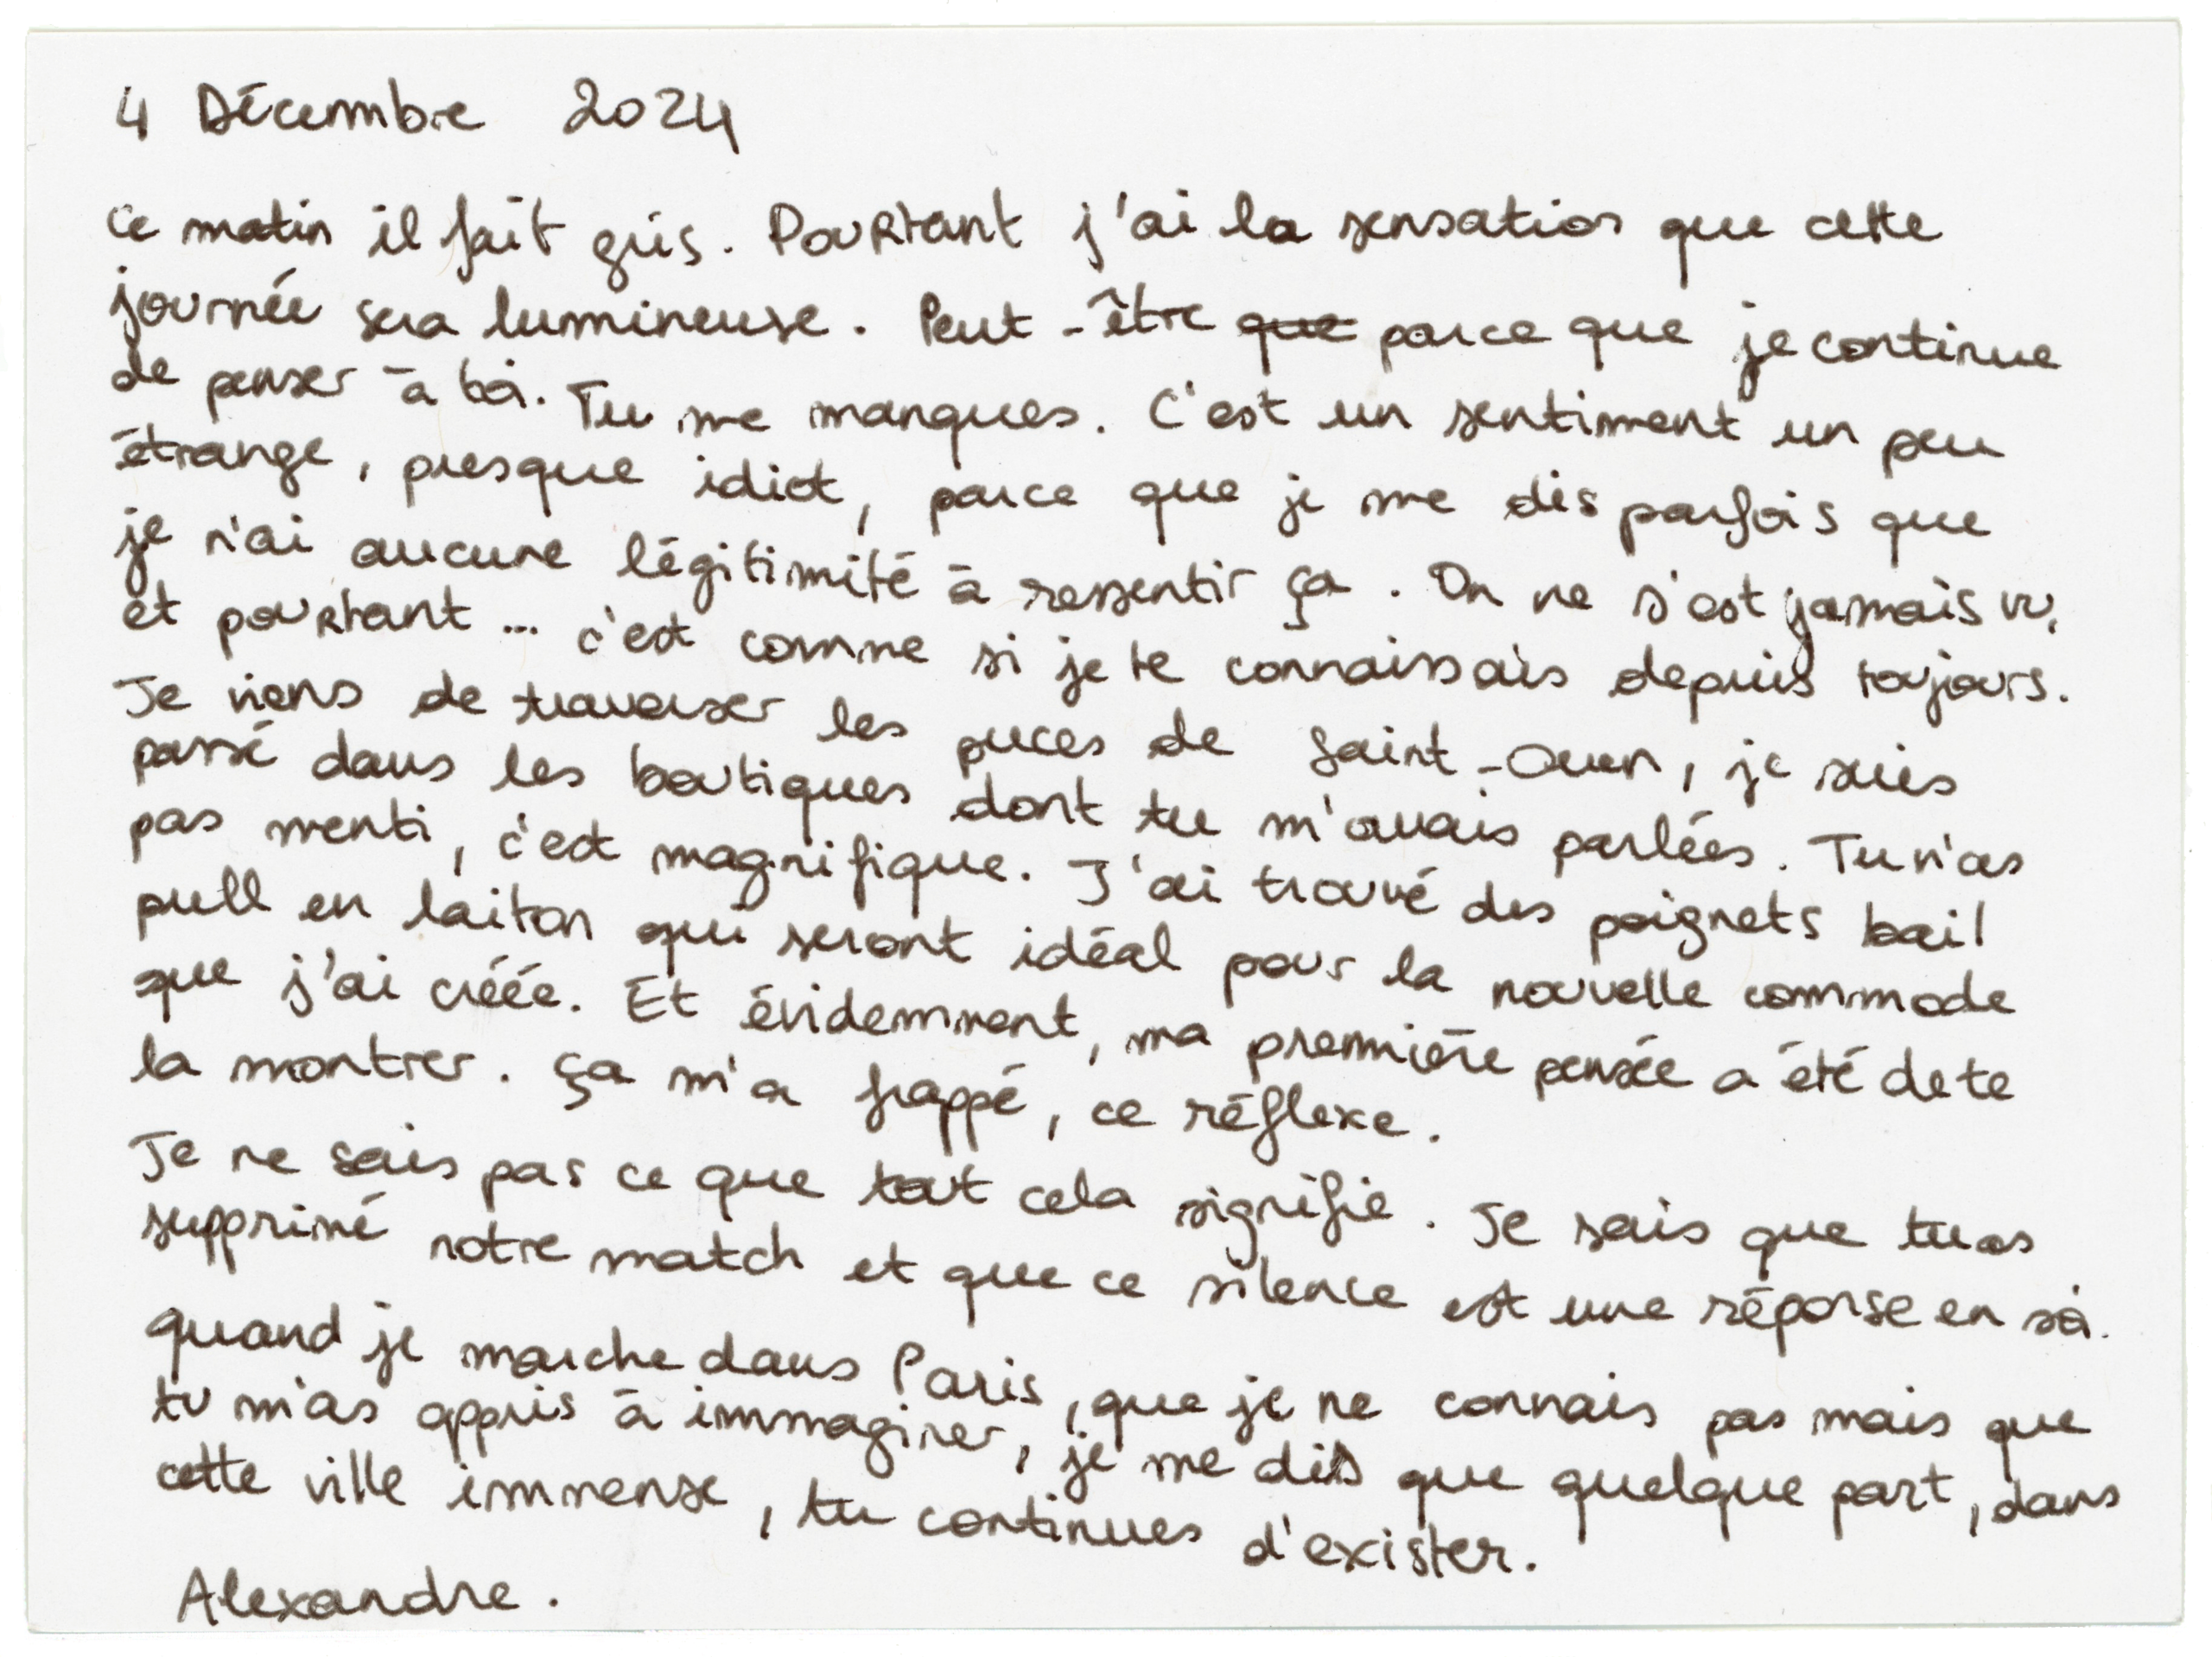 4 Décembre 2024
Ce matin il fait gris. Pourtant j'ai la sensation que cette
journée sera lumineuse. Peut-être que parce que je continue
de penser à toi. Tu me manques. C'est un sentiment un peu
étrange, presque idiot, parce que je me dis parfois que
je n'ai aucune légitimité à ressentir ça. On ne s'est jamais vu,
et pourtant... c'est comme si je te connaissais depuis toujours.
Je viens de traverser les puces de Saint-Ouen, je suis
passé dans les boutiques dont tu m'avais parlées. Tu n'as
pas menti, c'est magnifique. J'ai trouvé des poignets bail
pull en laiton qui seront idéal pour la nouvelle commode
que j'ai créée. Et évidemment, ma première pensée a été de te
la montrer. ça m'a frappé, ce réflexe.
Je ne sais pas ce que tout cela signifie. Je sais que tu as
supprimé notre match et que ce silence est une réponse en soi.
quand je marche dans Paris, que je ne connais pas mais que
tu m'as appris à immaginer, je me dis que quelque part, dans
cette ville immense, tu continues d'exister.
Alexandre.